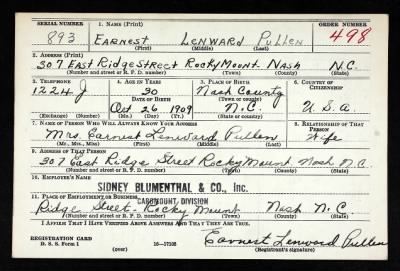 SERIAL NUMBER 1. NAME (Print) ORDER NUMBER
893 EARNEST LENWARD PULLEN 498
(First) (Middle) (Last)
2. ADDRESS (Print)
307 EAST RIDGE STREET ROCKY MOUNT NASH N.C.
(Number and street or R. F. D. number) (Town) (County) (State)
3. TELEPHONE 4. AGE IN YEARS 5. PLACE OF BIRTH 6. COUNTRY OF CITIZENSHIP
1224 J 30 Nash County
DATE OF BIRTH (Town or county)
Oct 26 1909 N.C. U.S.A.
(Exchange) (Number) (Mo.) (Day) (Yr.) (State or country)
7. NAME OF PERSON WHO WILL ALWAYS KNOW YOUR ADDRESS 8. RELATIONSHIP OF THAT PERSON
Mrs. Earnest Lenward Pullen Wife
(Mr., Mrs., Miss) (First) (Middle) (Last)
9. ADDRESS OF THAT PERSON
307 East Ridge Street Rocky Mount Nash N.C.
(Number and street or R. F. D. number) (Town) (County) (State)
10. EMPLOYER'S NAME
SIDNEY BLUMENTHAL & CO., Inc.
11. PLACE OF EMPLOYMENT OR BUSINESS CAROMOUNT DIVISION
Ridge Street - Rocky Mount Nash N.C.
(Number and street or R. F. D. number) (Town) (County) (State)
I AFFIRM THAT I HAVE VERIFIED ABOVE ANSWERS AND THAT THEY ARE TRUE.
REGISTRATION CARD Earnest Lenward Pullen
D. S. S. Form 1 (over) 16-17105 (Registrant's signature)